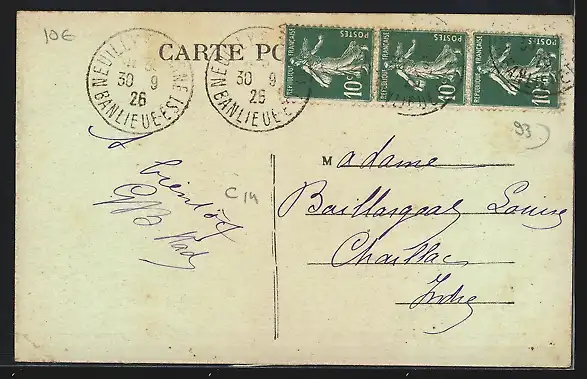 10€
CARTE PO
NEUILLY
30 9
26
BANLIEUE-EST
NEUILLY
30 9
26
BANLIEUE-EST
REPUBLIQUE FRANÇAISE
POSTES
10c
REPUBLIQUE FRANÇAISE
POSTES
10c
REPUBLIQUE FRANÇAISE
POSTES
10c
93
A bientôt
C14
Madame
Baillargeat Louise
Chaillac
Indre